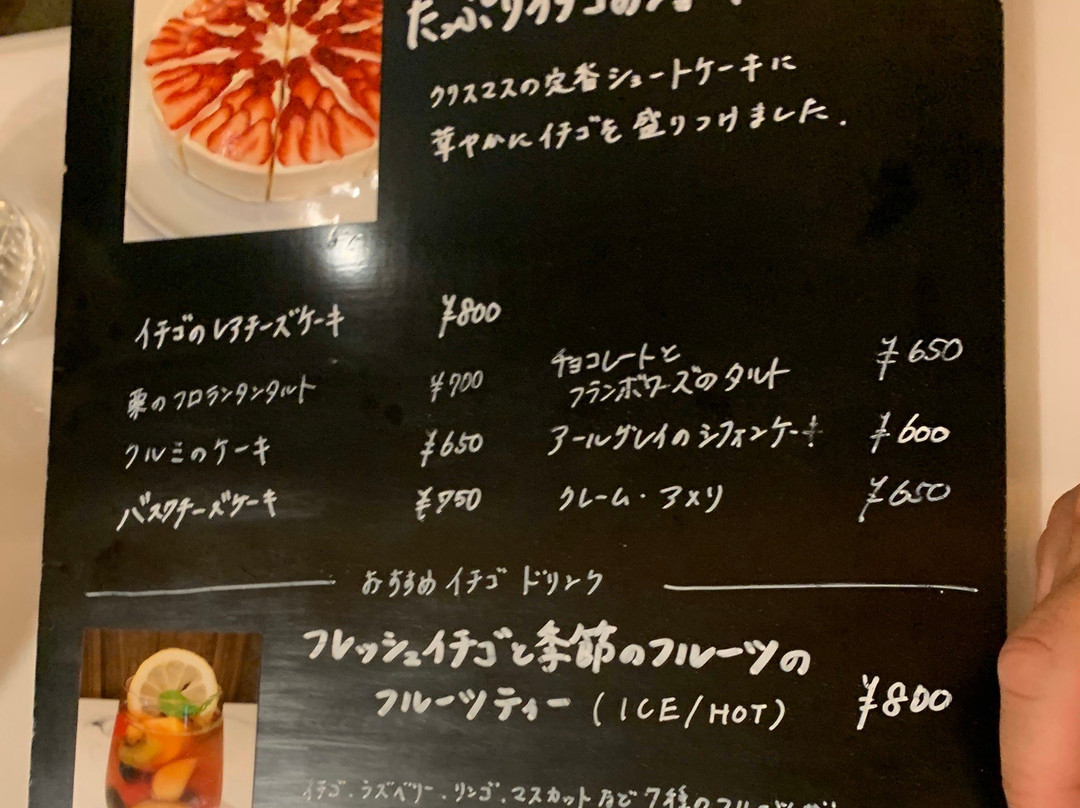 たっぷりイチゴのショート
クリスマスの定番ショートケーキに
華やかにイチゴを盛りつけました.
イチゴのレアチーズケーキ ¥800
栗のフロランタンタルト ¥700
クルミのケーキ ¥650
バスクチーズケーキ ¥750
チョコレートと
フランボワーズのタルト ¥650
アールグレイのシフォンケーキ ¥600
クレーム・アメリ ¥650
おすすめ イチゴ ドリンク
フレッシュイチゴと季節のフルーツの
フルーツティー (ICE/HOT) ¥800
イチゴ.ラズベリー.リンゴ.マスカットなど7種の